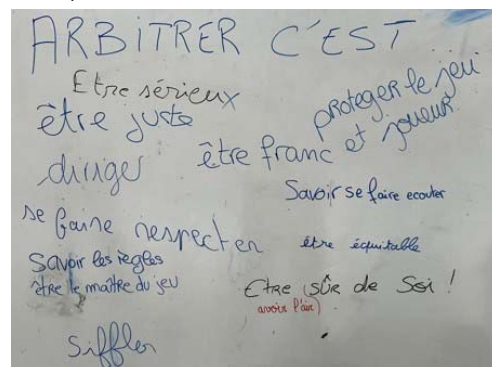 ARBITRER C'EST
Etre sérieux
être juste
proteger le jeu
et joueur
être franc
diriger
Savoir se faire ecouter
se faire respecter
être équitable
Savoir les règles
être le maître du jeu
Etre sûr de Soi !
(avoir l'air)
Siffler